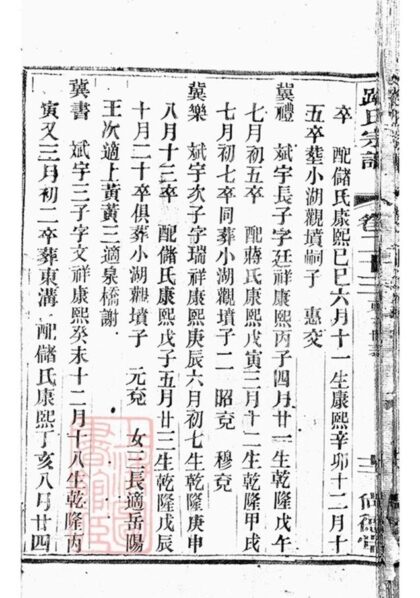 氏宗譜 卷
卒 配儲氏康熙己巳六月十一生康熙辛卯十二月十
五卒葬小湖觀墳嗣子 惠交
蓂禮 斌宇長子字廷祥康熙丙子四月廿一生康熙戊午
七月初五卒 配蔣氏康熙戊寅三月十二生乾隆甲戌
七月初七卒同葬小湖觀墳子二 昭兗 穆兗
蓂樂 斌宇次子字瑞祥康熙庚辰六月初七生乾隆庚申
八月十三卒 配儲氏康熙戊子五月廿三生乾隆戊辰
十月二十卒俱葬小湖觀墳子 元兗 女三長適岳陽
王次適上黃黃三適泉橋謝
蓂書 斌宇三子字文祥康熙癸未十二月十八生乾隆丙
寅又三月初二卒葬東溝 配儲氏康熙丁亥八月廿四